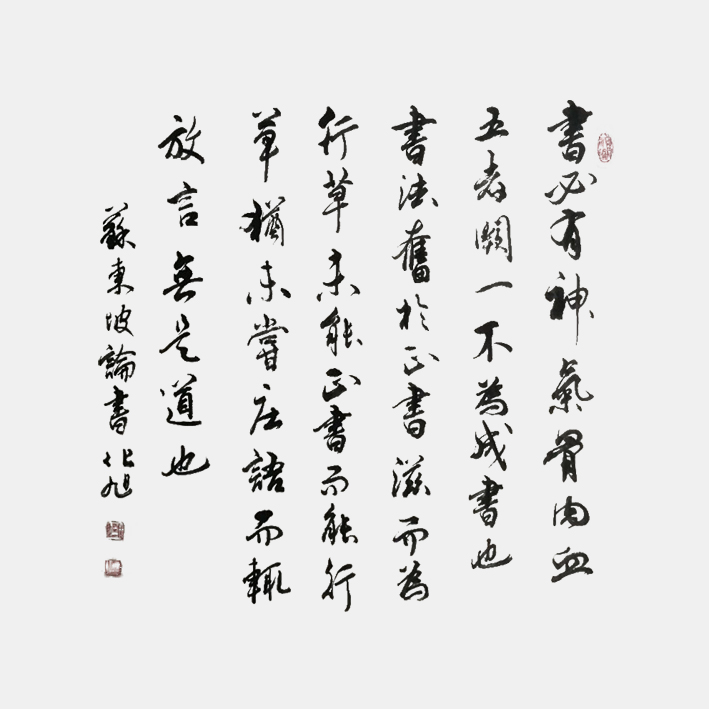 書必有神氣骨肉血
五者闕一不為成書也
書法奮於正書滋而為
行草未能正書而能行
草猶未嘗庄語而輒
放言無是道也
蘇東坡論書 化旭